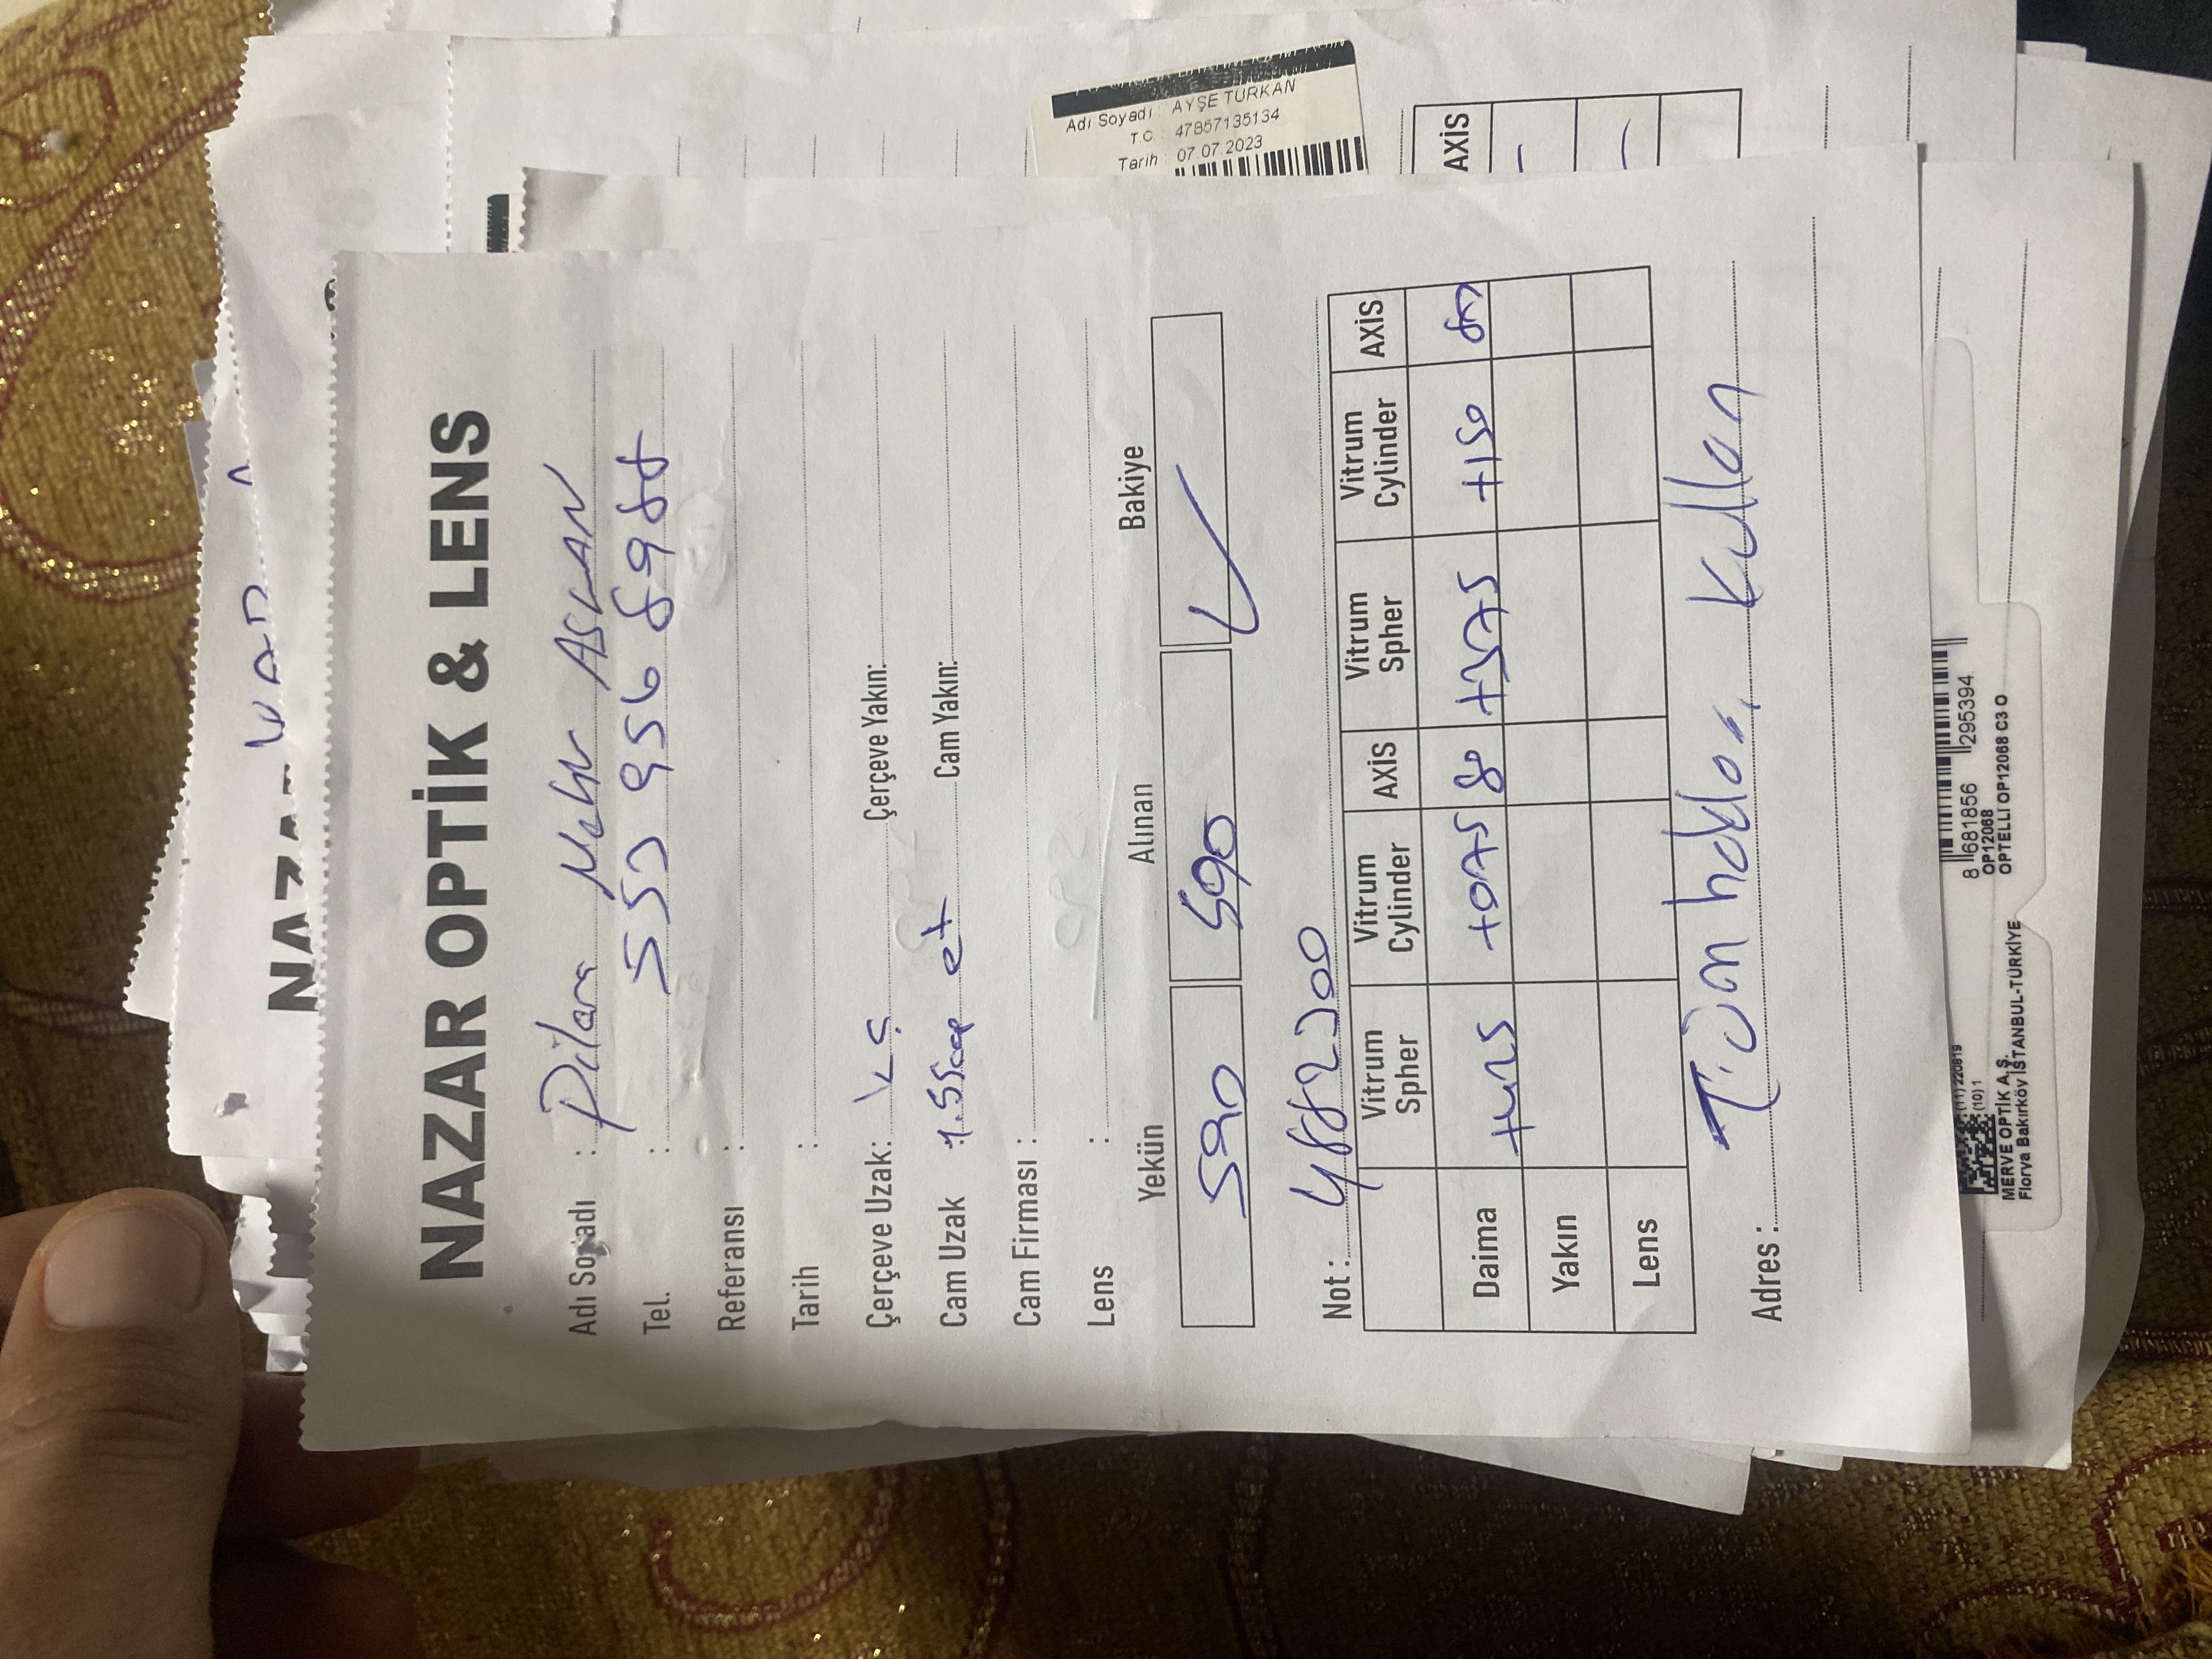 NAZAR OPTİK & LENS
Adı Soyadı : Dilara Nehir ASLAN
Tel. : 553 956 8988
Referansı :
Tarih :
Çerçeve Uzak: KŞ Çerçeve Yakın:
Cam Uzak : 1.55 Cam Yakın:
Cam Firması :
Lens :
Yekün Alınan Bakiye
590 590 ✓
Not : 4882300
Vitrum Spher Vitrum Cylinder AXİS Vitrum Spher Vitrum Cylinder AXİS
Daima +425 +075 80 +375 +150 80
Yakın
Lens
Adres : Tüm hakları kullan
Adı Soyadı : AYŞE TURKAN
T.C. : 47857135134
Tarih : 07 07 2023
AXİS
(11) 220819
(10) 1
MERVE OPTİK A.Ş.
Florya Bakırköy İSTANBUL-TÜRKİYE
8 681856 295394
OP12068
OPTELLI OP12068 C3 O